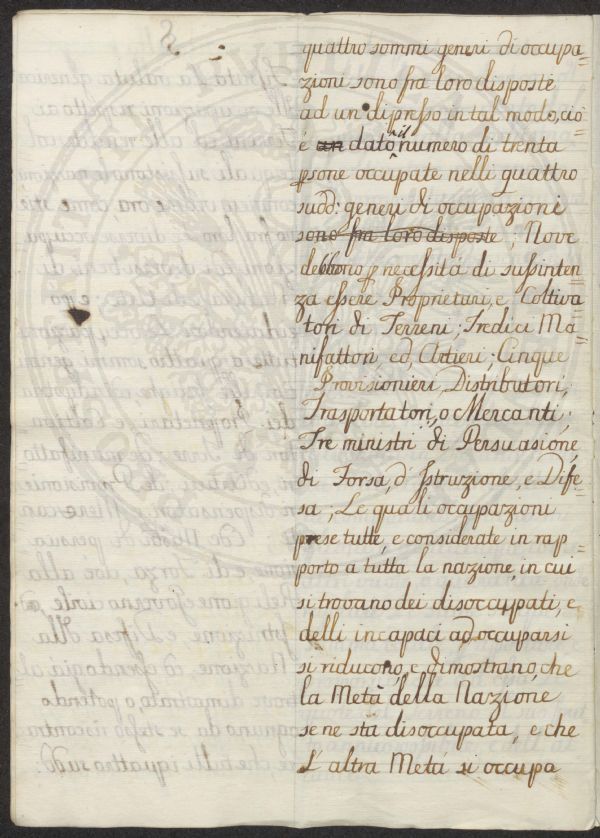 quattro sommi generi di occupa=
zioni sono fra loro disposte
ad un' dipresso in tal modo, cio
è an dato il numero di trenta
psone occupate nelli quattro
sudd: generi di occupazioni
sono fra loro disposte; Nove
debbono p necessità di sussinten
za essere Proprietari, e Coltiva
tori di Terreni; Tredici Ma
nifattori, ed Artieri; Cinque
Provisionieri, Distributori,
Trasportatori, o Mercanti;
Tre ministri di Persuasione,
di Forsa, d' Istruzione, e Dife
sa; Le quali occupazioni
prese tutte, e considerate in rap=
porto a tutta la nazione, in cui
si trovano dei disoccupati, e
delli incapaci ad occuparsi
si riducono, e dimostrano, che
la Metà della Nazione
se ne stà disoccupata, e che
L' altra Metà si occupa